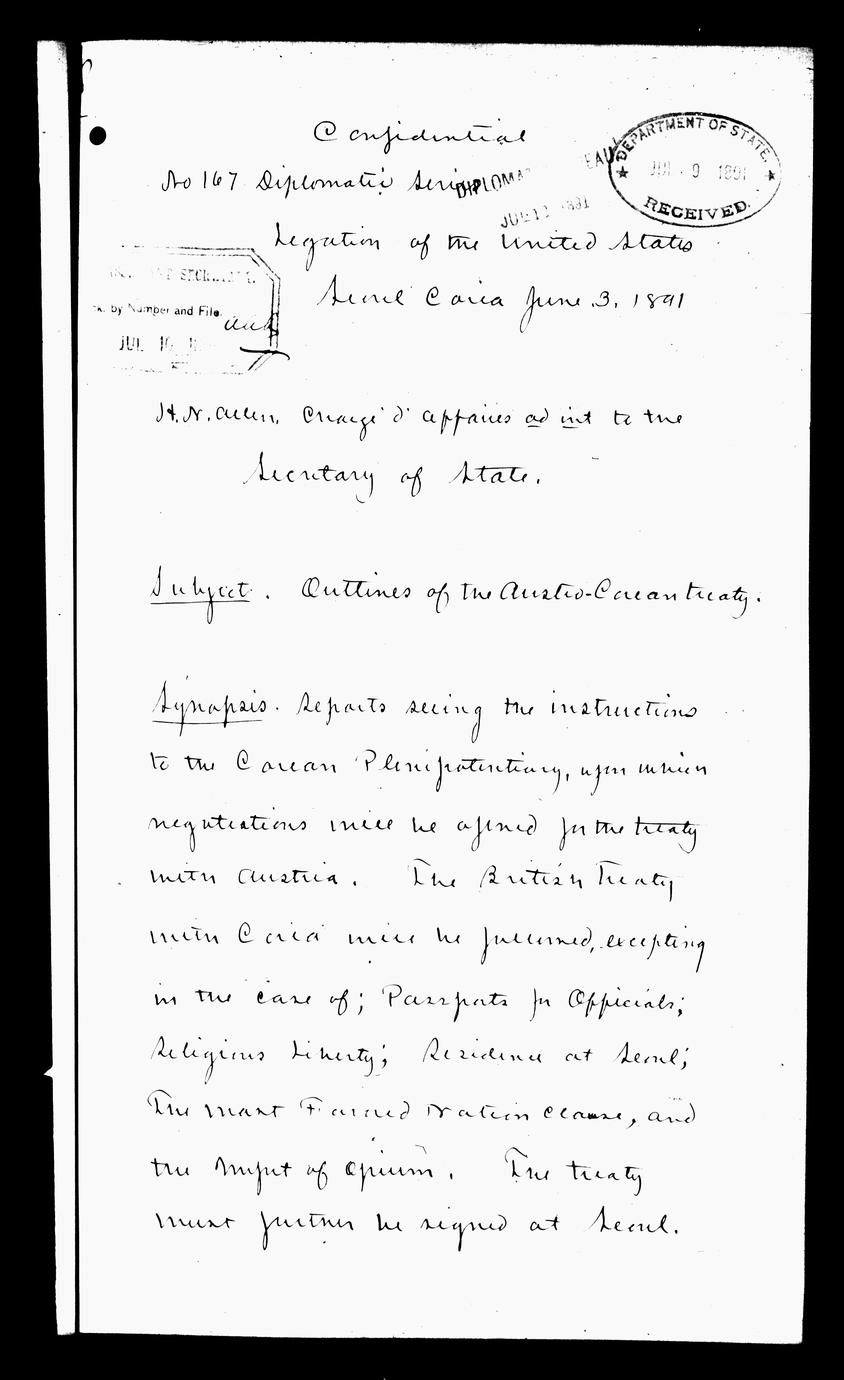 Confidential
No 167 Diplomatic Series
DEPARTMENT OF STATE,
JUL 9 1891
RECEIVED.
JUL 1891
Legation of the United States
Seoul Corea June 3, 1891
by Number and File.
JUL 10
H. N. Allen, Chargé d'affaires ad int to the
Secretary of State.
Subject. Outtlines of the Austro-Corean treaty.
Synopsis. Reports seeing the instructions
to the Corean Plenipotentiary, upon which
negotiations will be opened for the treaty
with Austria. The British Treaty
with Corea will be followed, excepting
in the case of; Passports for Officials;
Religious Liberty; Residence at Seoul;
The most Favored Nation clause, and
the Import of Opium. The treaty
must further be signed at Seoul.